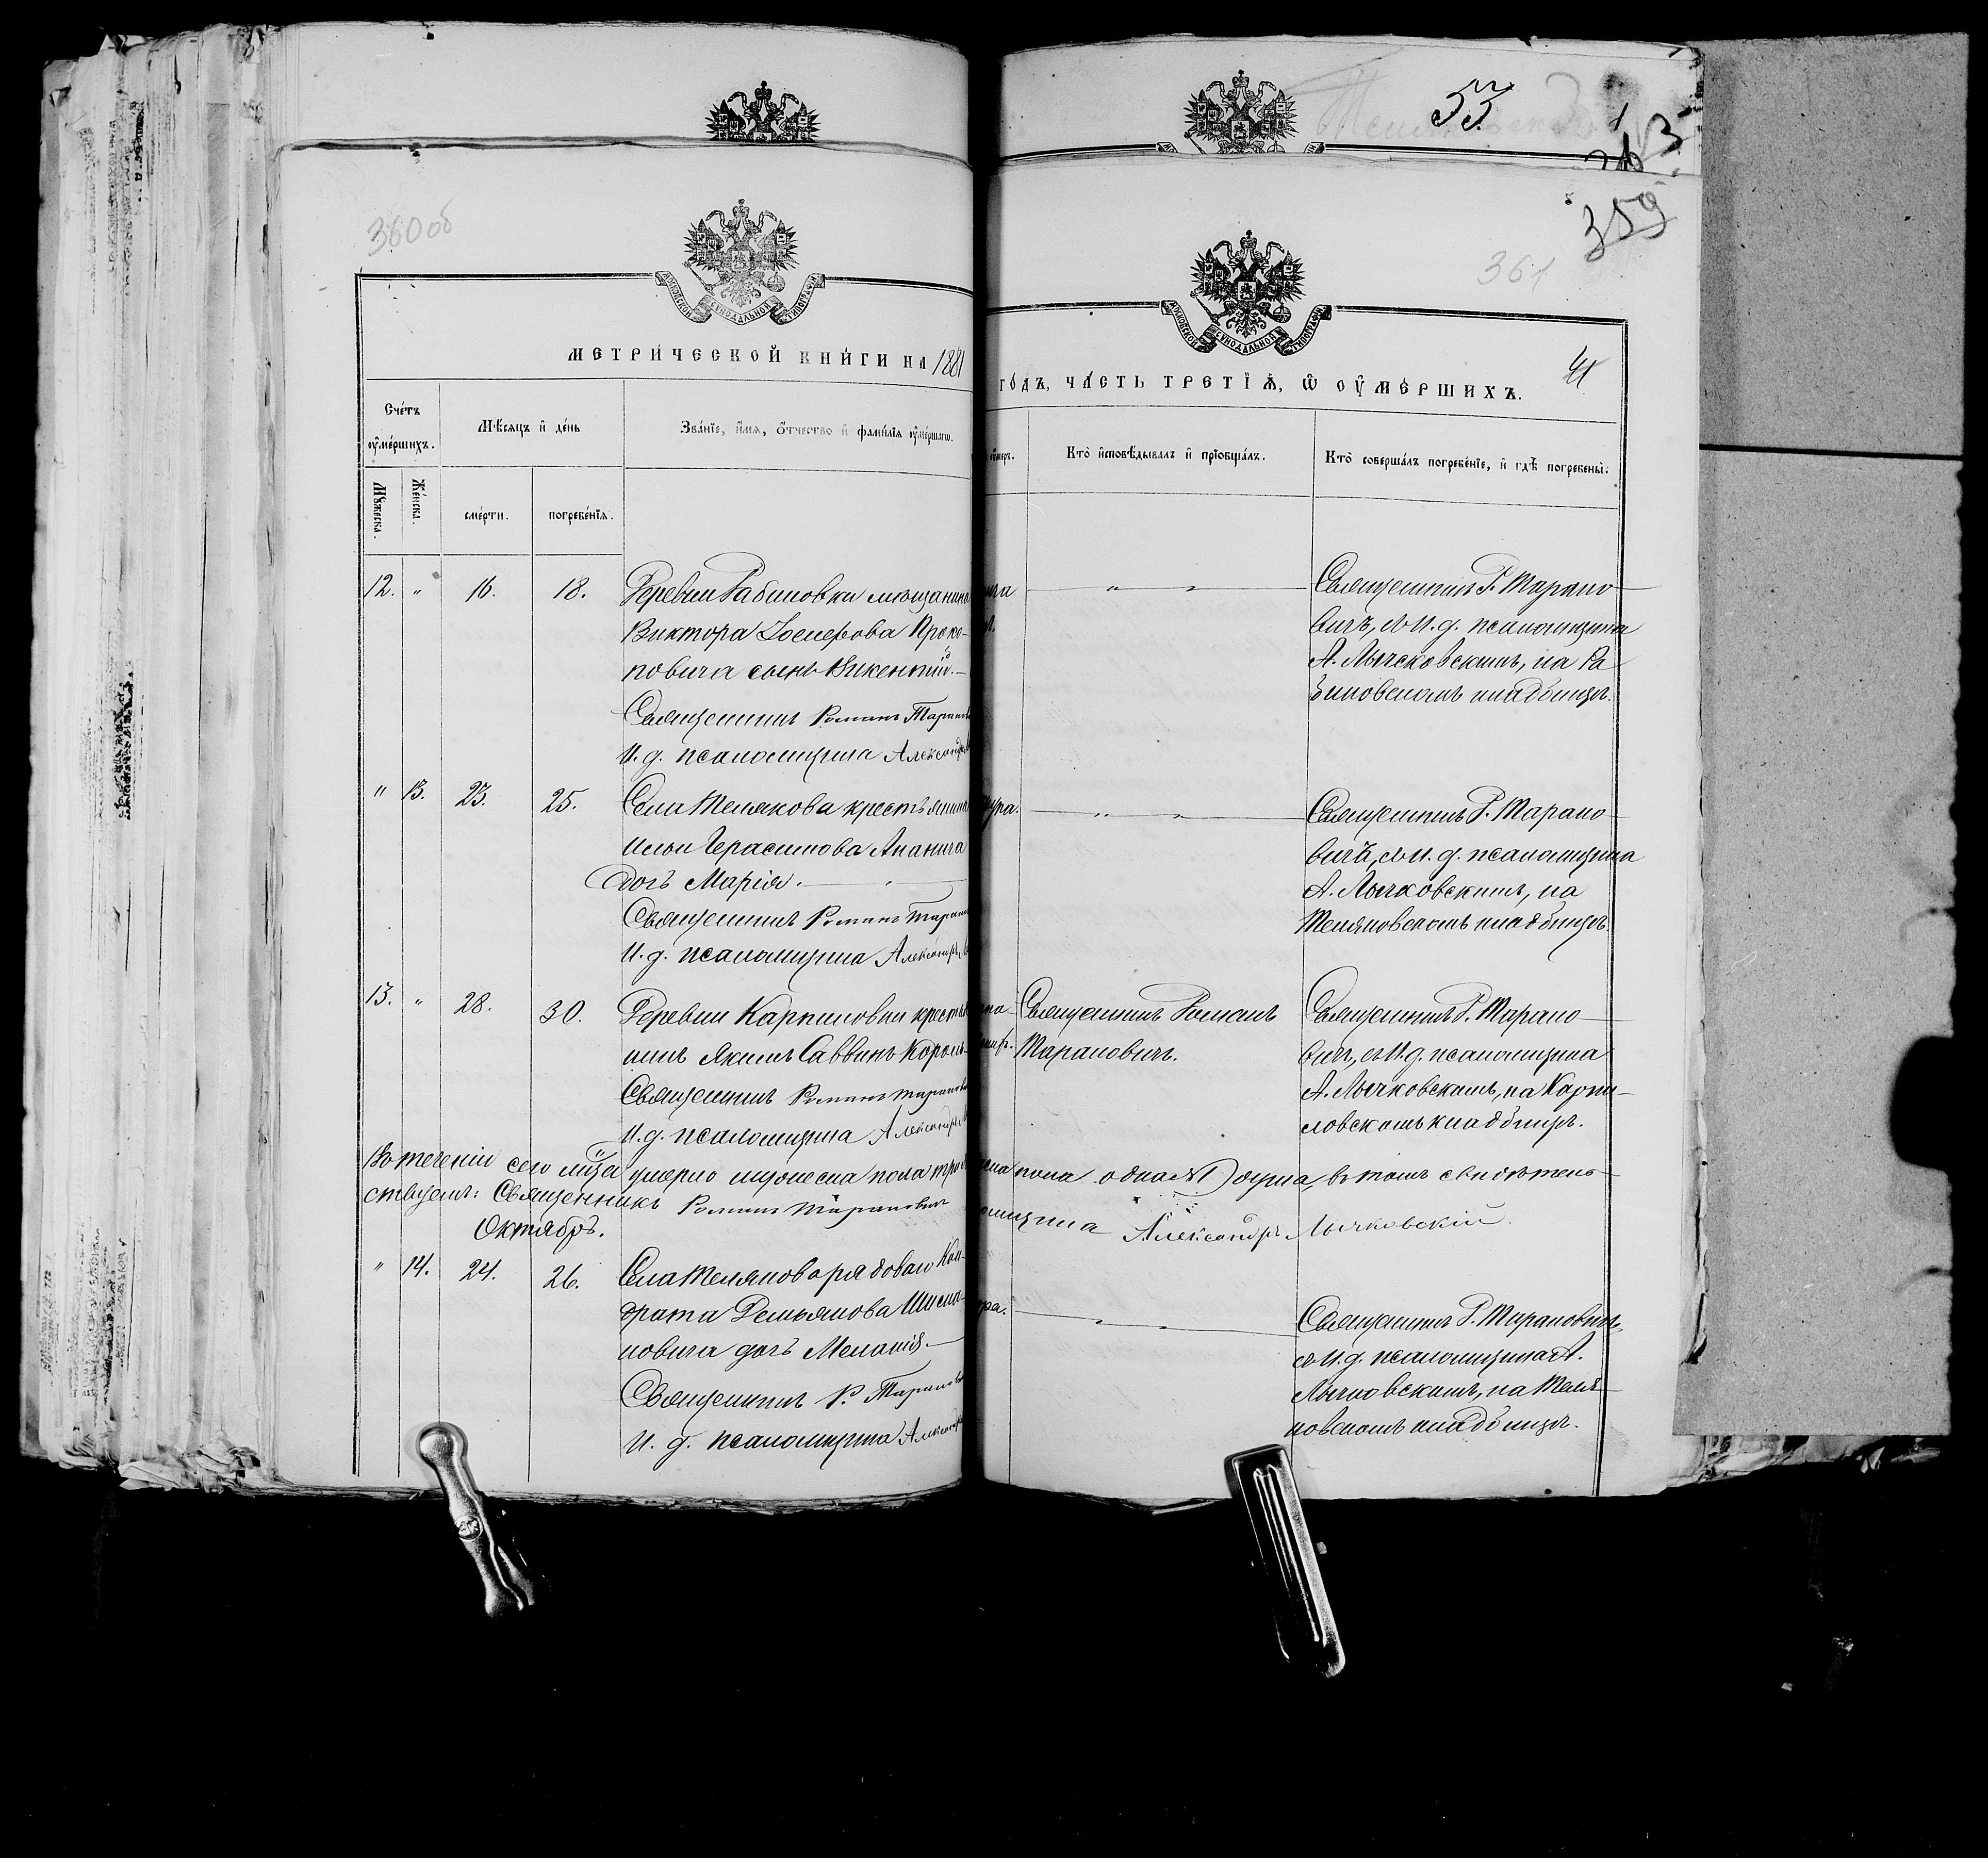 55
359
360 об
361
41
МОСКОВСКОЙ СѴНОДАЛЬНОЙ ТИПОГРАФІИ
МОСКОВСКОЙ СѴНОДАЛЬНОЙ ТИПОГРАФІИ
МЕТРИ́ЧЕСКОЙ КНИ́ГИ НА 1881
ГО́ДЪ, ЧА́СТЬ ТРЕТІѦ, Ѿ ОУ҆МЕ́РШИХЪ.
Сче́тъ оу҆ме́ршихъ.
Мѣ́сяцъ и҆ де́нь
Зва́нїе, и҆́мѧ, ѻ҆́тчество и҆ фами́лїѧ оу҆ме́ршагѡ.
оу҆́меръ.
Кто̀ и҆сповѣ́дывалъ и҆ прїѡбща́лъ.
Кто̀ соверша́лъ погребе́нїе, и҆ гдѣ̀ погребены̀.
Мꙋ́жеска.
Же́нска.
сме́рти.
погребе́нїѧ.
12. " 16. 18. Деревни Рабиновки мѣщанина
Виктора Іосифова Проко-
повича сынъ Викентій.
Священникъ Романъ Таранов
И. д. псаломщика Александръ
Священникъ Р. Тарано-
вичъ, съ И. д. псаломщика
А. Лычковскимъ, на Ра-
биновскомъ кладбищѣ.
" 13. 23. 25. Села Телякова крестьянина
Ильи Герасимова Ананича
дочь Марія.
Священникъ Романъ Таранов
И. д. псаломщика Александръ
Священникъ Р. Тарано-
вичъ, съ И. д. псаломщика
А. Лычковскимъ, на
Теляковскомъ кладбищѣ.
13. " 28. 30. Деревни Карпиловки крестья
нинъ Якимъ Саввинъ Король
Священникъ Романъ Таранович
И. д. псаломщика Александръ
Священникъ Романъ
Тарановичъ.
Священникъ Р. Тарано-
вичъ, съ И. д. псаломщика
А. Лычковскимъ, на Карпи-
ловскомъ кладбищѣ.
Въ теченіи сего мѣсяца умерло мужеска пола
пола одна (1) душа, въ томъ свидѣтель-
ствуемъ: Священникъ Романъ Тарановичъ
Александръ Лычковскій
Октябрь.
" 14. 24. 26. Села Телякова рядоваго Кон-
драта Демьянова
новича дочь Меланія.
Священникъ Р. Таранов
И. д. псаломщика Александръ
Священникъ Р. Тарановичъ,
съ И. д. псаломщика А.
Лычковскимъ, на Теля-
ковскомъ кладбищѣ.